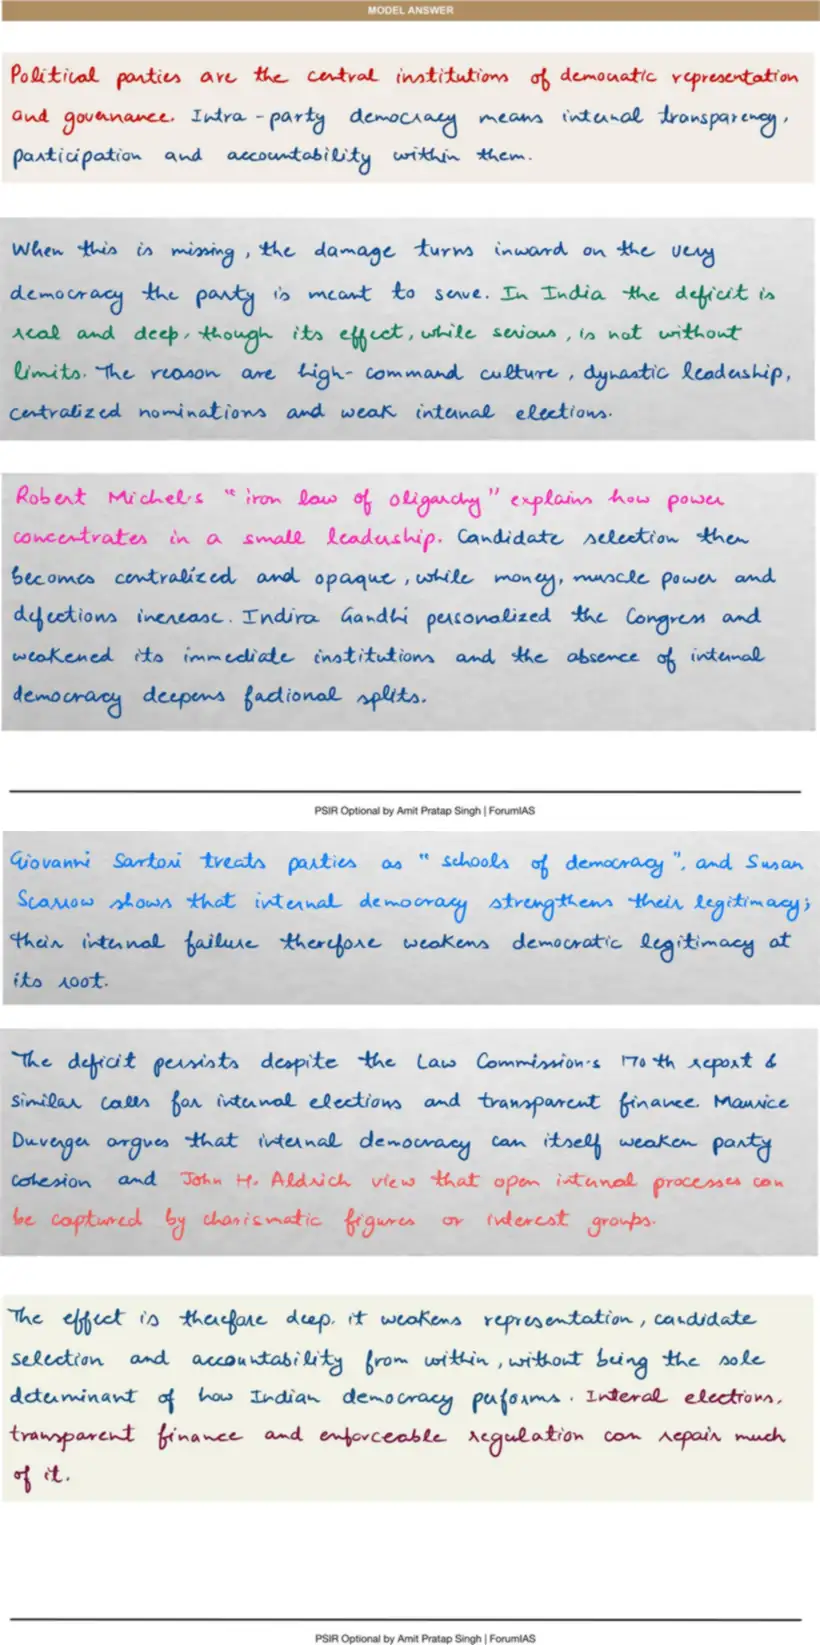 MODEL ANSWER
Political parties are the central institutions of democratic representation
and governance. Intra-party democracy means internal transparency,
participation and accountability within them.
When this is missing, the damage turns inward on the very
democracy the party is meant to serve. In India the deficit is
real and deep, though its effect, while serious, is not without
limits. The reason are high-command culture, dynastic leadership,
centralized nominations and weak internal elections.
Robert Michel's "iron law of oligarchy" explains how power
concentrates in a small leadership. Candidate selection then
becomes centralized and opaque, while money, muscle power and
defections increase. Indira Gandhi personalized the Congress and
weakened its immediate institutions and the absence of internal
democracy deepens factional splits.
PSIR Optional by Amit Pratap Singh | ForumIAS
Giovanni Sartori treats parties as "schools of democracy", and Susan
Scarrow shows that internal democracy strengthens their legitimacy;
their internal failure therefore weakens democratic legitimacy at
its root.
The deficit persists despite the Law Commission's 170th report &
similar calls for internal elections and transparent finance. Maurice
Duverger argues that internal democracy can itself weaken party
cohesion and John H. Aldrich view that open internal processes can
be captured by charismatic figures or interest groups.
The effect is therefore deep. it weakens representation, candidate
selection and accountability from within, without being the sole
determinant of how Indian democracy performs. Interal elections,
transparent finance and enforceable regulation can repair much
of it.
PSIR Optional by Amit Pratap Singh | ForumIAS